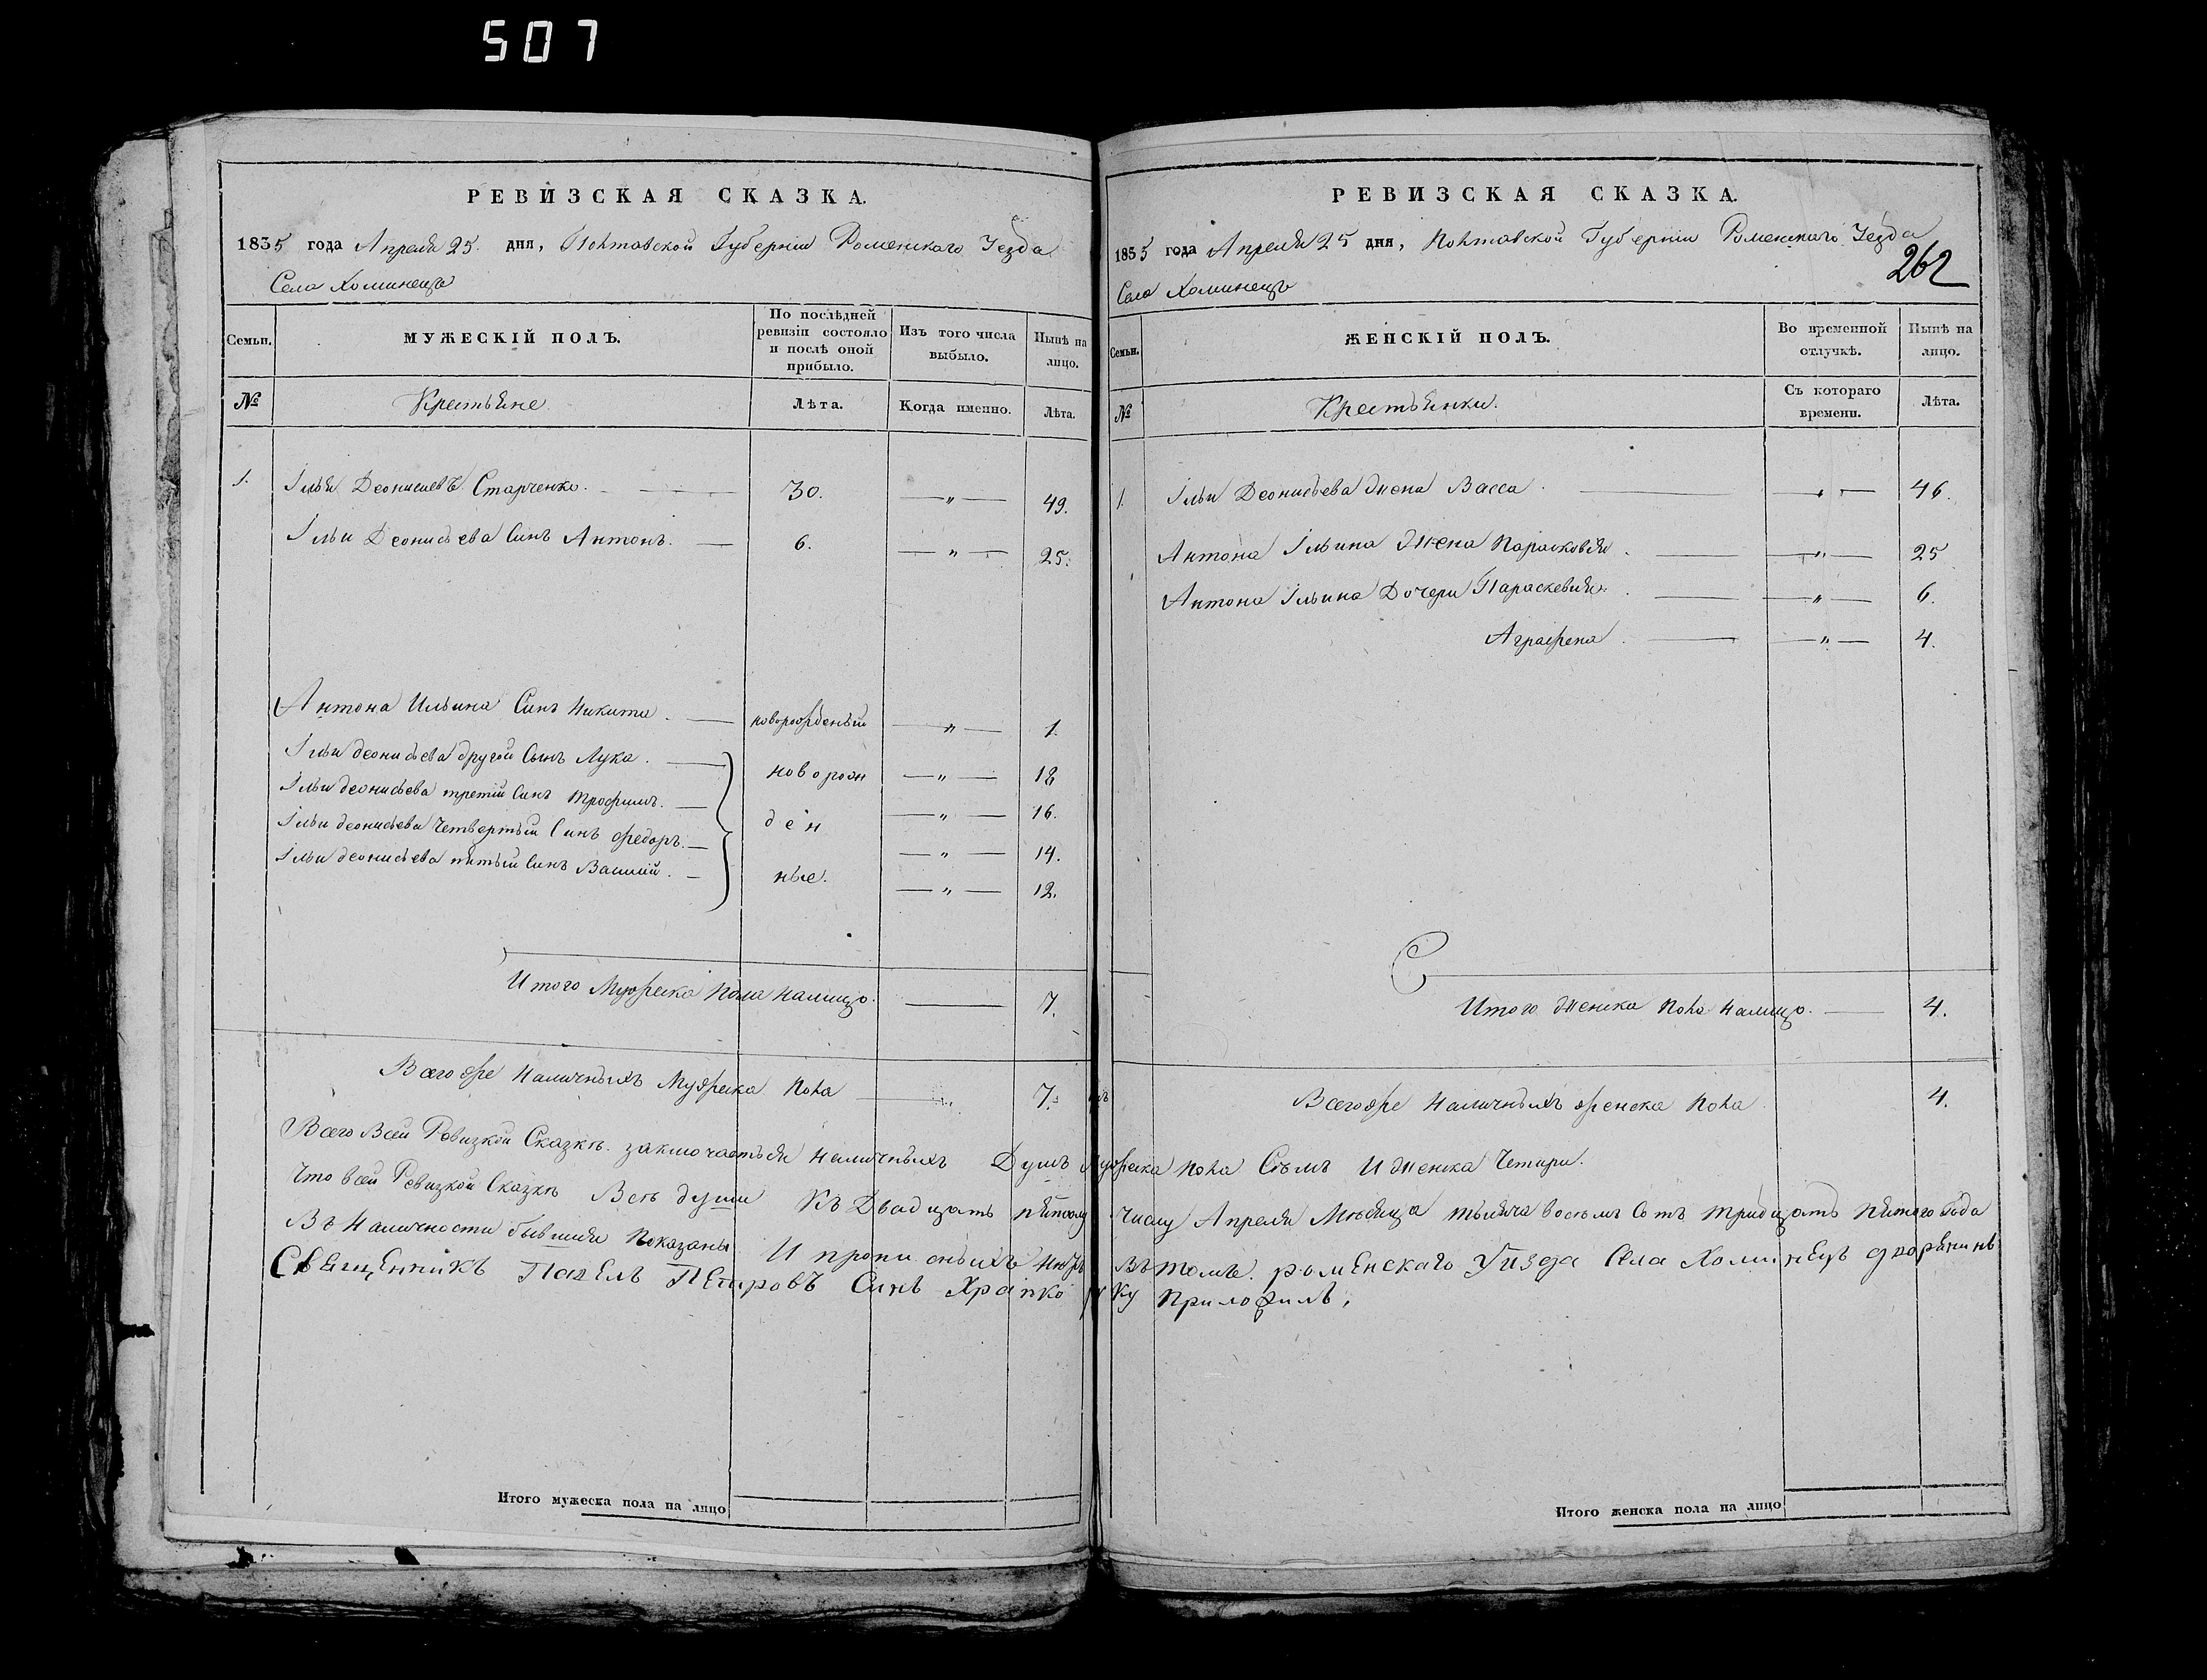 507
РЕВИЗСКАЯ СКАЗКА.
1835 года Апреля 25. дня, Полтавской Губернии Роменскаго Уезда
Села Хоминецъ
Семьи.
МУЖЕСКІЙ ПОЛЪ.
По послѣдней ревизіи состояло и послѣ оной прибыло.
Изъ того числа выбыло.
Нынѣ на лицо.
№
Крестьяне
Лѣта.
Когда именно.
Лѣта.
1. Ілья Деонисиевъ Старченко. 30. — " — 49.
Ільи Деонисьева Синъ Антонъ. 6. — " — 25.
Антона Ильина Синъ Никита. новорожденый — " — 1.
Ільи деонисьева другой Сынъ Лука. — " — 18
Ільи деонисьева третій Синъ Трофимъ. — " — 16.
Ільи деонисьева Четвертый Синъ Федоръ. — " — 14.
Ільи деонисьева пятый Синъ Василій. — " — 12.
новорож
ден
ные.
Итого Мужеска Пола Налицо. 7.
Всего же Наличныхъ Мужеска Пола 7.
РЕВИЗСКАЯ СКАЗКА.
1835 года Апреля 25 дня, Полтавской Губернии Роменскаго Уезда
262
Села Хоминецъ
Семьи.
ЖЕНСКІЙ ПОЛЪ.
Во временной отлучкѣ.
Нынѣ на лицо.
№
Крестьянки.
Съ котораго времени.
Лѣта.
1. Ільи Деонисьева Жена Васса. 46.
Антона Ільина Жена Парасковія. — " — 25
Антона Ільина Дочери Параскевия. — " — 6.
Аграфена. — " — 4.
Итого Женска Пола Налицо. 4.
Всего же Наличныхъ женска Пола 4.
Всего Всей Ревизкой Сказкѣ. заключаеться Наличныхъ Душъ Мужеска Пола Семъ И Женска Четири.
Что всей Ревизкой Сказкѣ Всѣ души Къ Двадцать пятому Числу Апреля Мѣсяца тысяча восемъ Сотъ тридцать пятого Года
Въ Наличности бывшия Показаны И въ томъ. роменскаго Уизда Села Хоминецъ дворянинъ
Священникъ Павелъ Петровъ Синъ Храпко руку приложилъ,
Итого мужеска пола на лицо
Итого женска пола на лицо